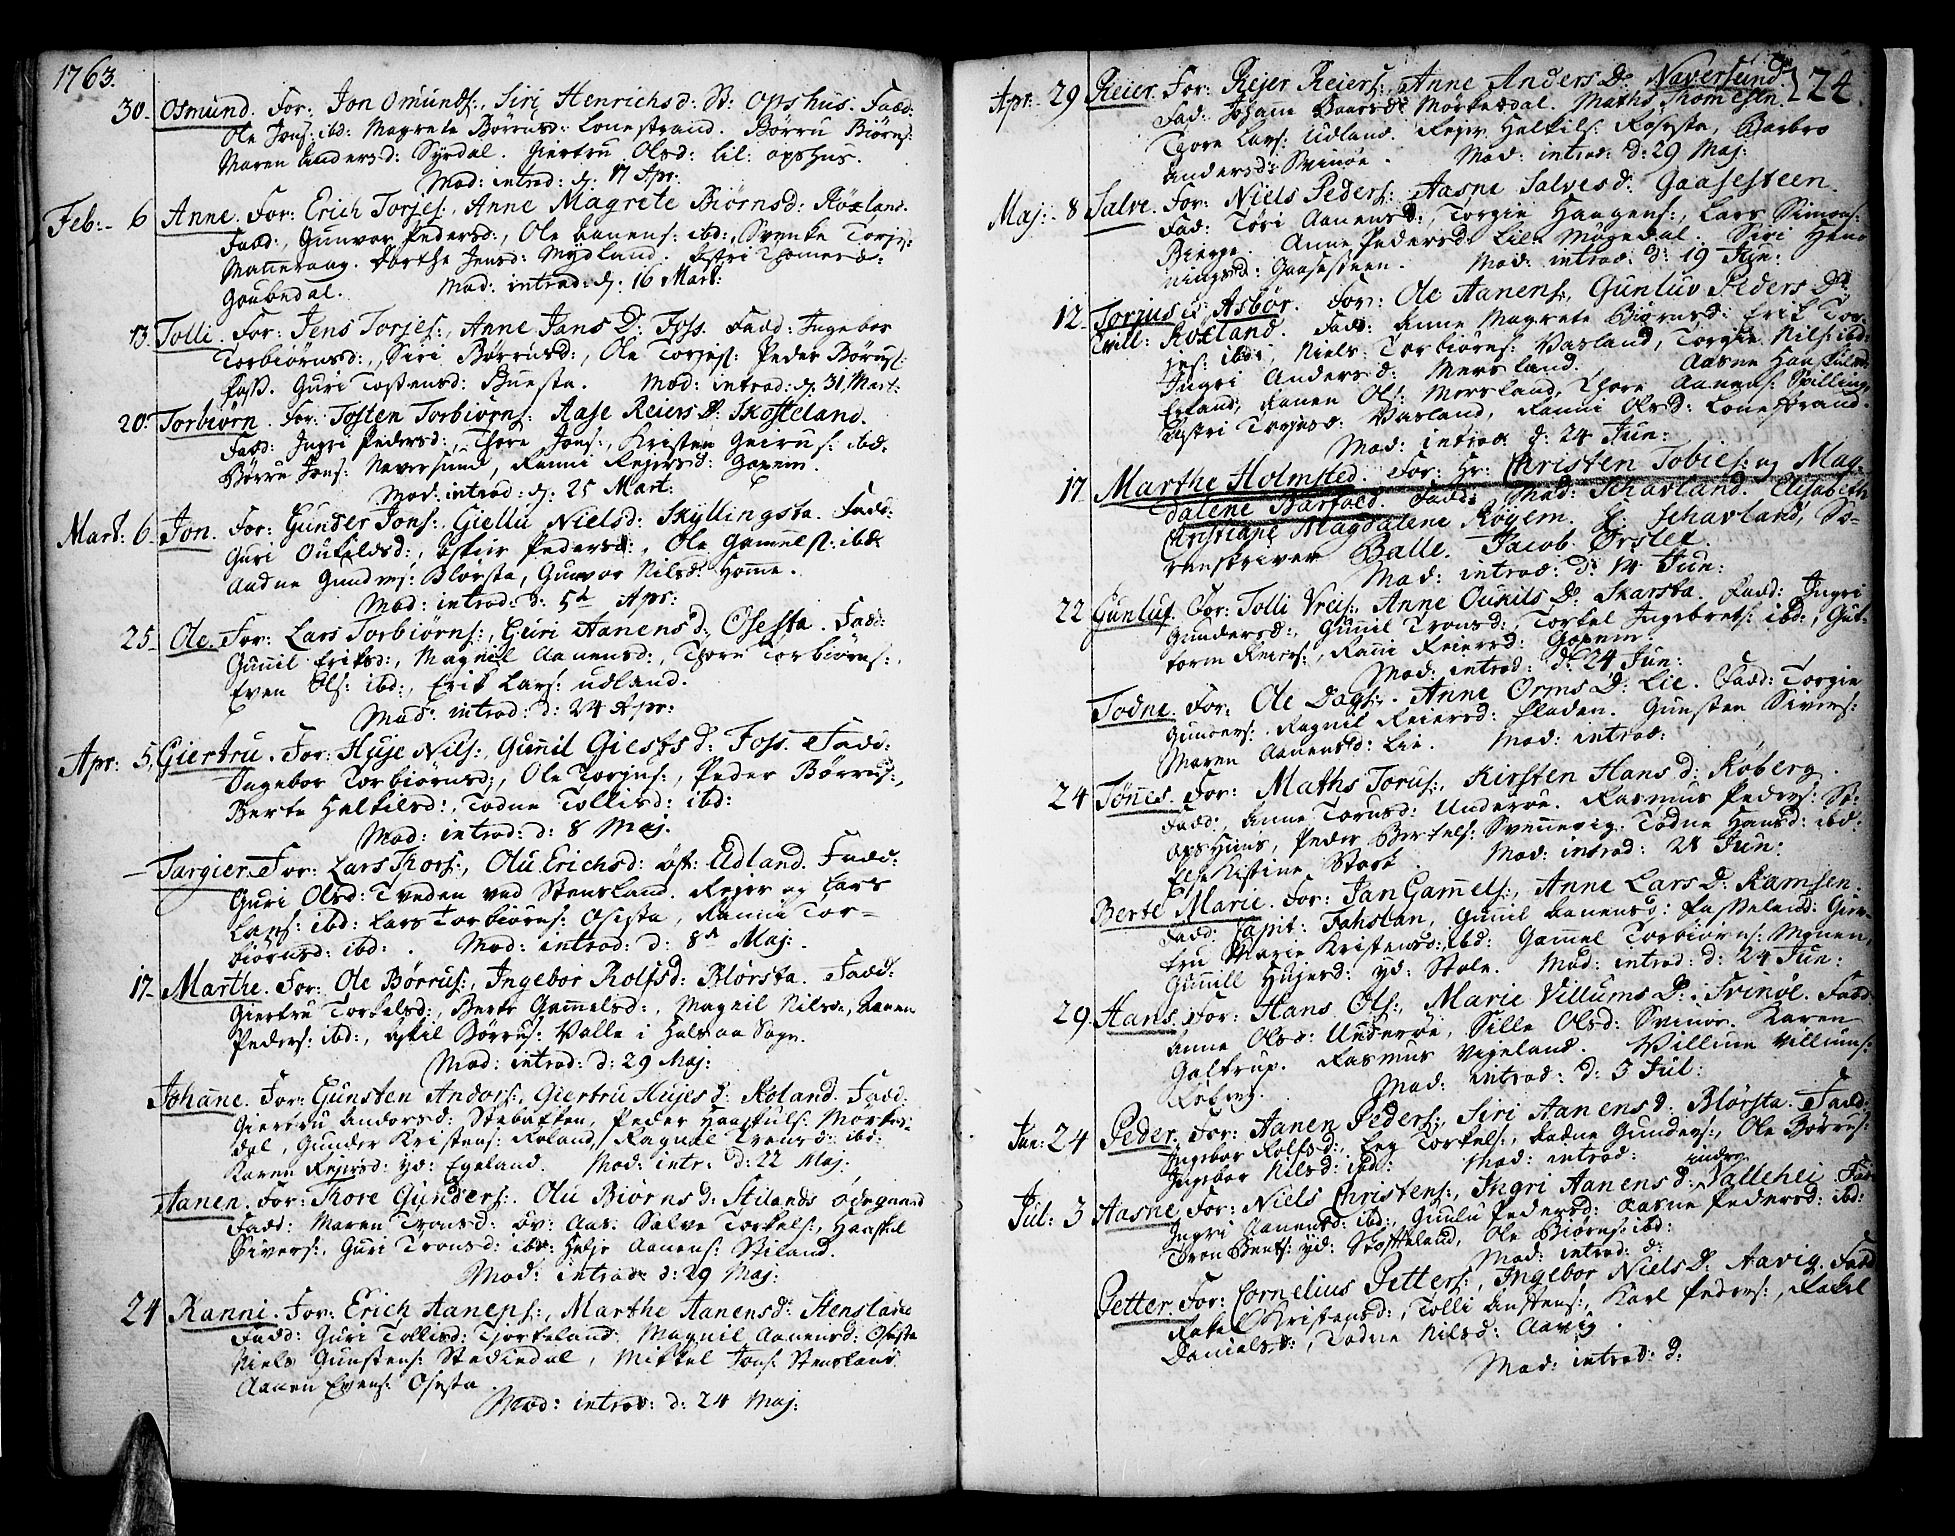 1763.
30. Osmund. For: Jon Omunds:, Siri Henrichsd: St: Opshus. Fadd:
Ole Jons: ibd: Magrete Børrusd: Lonestrand. Børru Biørns:
Maren Andersd: Syrdal. Giertru Olsd: lil: opshus.
Mod: introd: d: 17 Apr:
Feb:- 6 Anne. For: Erich Torjes:, Anne Magrete Biørnsd: Röxland.
Fadd:, Gunvor Pedersd:, Ole Aanens: ibd:, Svenke Torjes:
Dorthe Jensd: Mydland. Thomesd:
Goubedal. Mod: introd: d: 16 Mart:
13. Tolli. For: Jens Torjes:, Anne Jans D: Foss. Fadd: Ingebor
Torbiørnsd:, Siri Børrusd:, Ole Torjes: Peder Børus:
Foss. Guri Tostensd: Buesta. Mod: introd: d: 31 Mart:
20. Torbiørn. For: Tosten Torbiørns: Aase Reiers D: Skofteland.
Fadd: Ingri Pedersd:, Thore Jons:, Kristen Geirus: ibd:
Børru Jons: Naversund, Ranni Rejersd: Goxem.
Mod: introd: d: 25 Mart:
Mart: 6. Jon. For: Gunder Jons:, Giellu Nielsd: Skyllingsta. Fadd:
Guri Oukildsd:, Pedersd:, Ole Gamels: ibd:
Aadne Gunders: Blørsta, Gunvor Nilsd: Homme.
Mod: introd: d: 5t Apr:
25_ Ole. For: Lars Torbiørns:, Guri Aanensd:, Osesta. Fadd:
Gunnil Eriksd:, Magnil Aanensd:, Thore Torbiørns:,
Even Ols: ibd:, Erik Lars: udland.
Mod: introd: d: 24 Apr:
Apr: 5. Giertru. For: Huje Nils:, Gunnil Giestsd: Foss. Fadd:
Ingebor Torbiørnsd:, Ole Torjus:, Peder Børrus:,
Berte Helkilsd:, Todne Tollisd: ibd:
Mod: introd: d: 8 Maj.
_ Targier. For: Lars Thors:, Olu Erichsd: öst: Udland. Fadd:
Guri Olsd: Tveden ved Stensland. Rejer og Lars
Lars: ibd: Lars Torbiørns: Osesta, Ranni Tor=
biørnsd: ibd:. Mod: introd: d: 8d Maj:.
17_ Marthe. For: Ole Børrus:, Ingebor Rolfsd: Blørsta. Fadd:
Giertru Torkelsd:, Berte Gammelsd:, Magnil Nilsd:, Aanen
Peders: ibd:, Eskil Børrus: Valle i Halsaa Sogn.
Mod: introd: d: 29 Maj:
Johanne. For: Gunsten Anders:, Giertru Hujesd: Roland. Fadd:
Giertru Andersd: Stebakken, Peder Haaskuls: Mörkes=
dal, Gunder Kristens: Roland, Ragnil Tronsd: ibd:
Karen Rejersd: yd: Egeland. Mod: intr: d: 22 Maj:
Aanen. For: Thore Gunders:, Olu Biørnsd: Stilands ödegaard
Fadd: Maren Tronsd: öv: Aas. Salve Torkels:, Haaskul
Sivers:, Guri Tronsd: ibd: Helje Aanens: Stiland.
Mod: introd: d: 29 Maj:
24 Ranni. For: Erich Aanens:, Marthe Aanensd: Stensland
Fadd: Guri Tollisd: Tjorteland, Magnil Aanensd: Osesta
Niels Gunstens: Stediedal, Mikkel Jons: Stensland
Aanen Evens: Osesta.
Mod: introd: d: 24 Maj:
224.
Apr:- 29 Reier. For: Rejer Reiers:, Anne Anders D: Naversund:
Fad: Johanne Baarsd: Mörkesdal. Maths Thomesen
Thore Lars: Udland. Rejer Helkils: Rosesta, Barbro
Andersd: Svinøe. Mod: introd: d: 29 Maj:
Maj:- 8 Salve. For: Niels Peders:, Aasne Salvesd: Gaasesteen.
Fad: Töri Aanensd:, Torgie Haagens:, Lars Simons:
Bierge. Anne Pedersd: Lil: Mögedal. Siri Hen=
ningsd: Gaasesteen. Mod: introd: d: 19 Jun:
12. Torjus & Asbör. For: Ole Aanens:, Gunluv Peders D:
Tvill: Roxland. Fadd: Anne Magrete Biørnsd: Erik Tor=
jes: ibd:, Niels Torbiørns: Vasland, Torgie Nils: ibd:
Ingri Andersd: Mersland. Aasne Haaskulsd:
Erland, Aanen Ols: Mersland, Thore Aanens:
Torjesd: Vasland, Ranni Olsd: Lonestrand.
Mod: introd: d: 24 Jun:
17 Marthe Holmsted. For: Hr: Christen Tobies: og Mag=
dalene Barfoed. Fadd: Mad: Schavland. Elisabeth
Christiane Magdalene Röyem. Schavland, So=
renskriver Balle. Jacob Örslef.
Mad: introd: d: 14 Jun:
22 Gunluf. For: Tolli Vries:, Anne Oukils D: Skarsta. Fadd: Ingri
Gundersd:, Gunnil Tronsd:, Torkel Ingebrets: ibd:, Gut=
torm Reiers:, Ranni Reiersd: Goxem.
Mod: introd: d: 24 Jun:
Todne. For: Ole Dags:, Anne Orms D: Lie. Fadd: Torgie
Gunders:, Ragnil Reiersd: Fladen. Gunsten Sivers:
Maren Aanensd: Lie. Mod: introd:
24 Tönnes. For: Maths Torus:, Kirsten Hansd: Köberg.
Fadd: Anne Torusd: Underøe. Rasmus Peders: St:
opshuus, Peder Bertels: Svennevig. Todne Hansd: ibd:
Else Kistine Stark. Mod: introd: 21 Jun:
Berte Marie. For: Jan Gammels:, Anne Lars D: Ramsen.
Fadd: Capit: Fahslan, Gunil Aanensd: Fasseland: Gier=
tru Marie Kristensd: ibd: Gammel Torbiørns: Monen,
Gunnill Hujesd: yd: Stole. Mod: introd: d: 24 Jun:
29. Hans. For: Hans Ols:, Marie Villums D: Svinöe. Fadd:
Anne Olsd: Underøe, Sille Olsd: Svinöe. Karen
Galtrup. Rasmus Vigeland. Villum Villums:
Köberg. Mod: introd: d: 3 Jul:
Jun: 24 Peder. For: Aanen Peders:, Siri Aanensd: Blörsta. Fadd:
Ingebor Rolfsd:, Leg Torkels:, Aadne Gunders:, Ole Börrus:
Ingebor Nilsd: ibd: Mod: introd:
Jul: 3 Aasne. For: Niels Christens:, Ingri Aanensd: indre Vallehei. Fad
Ingri Aanensd: ibd:, Gunlu Pedersd: Aasne Pedersd: ibd:
Tron Bents: yd: Skofteland, Ole Biørns: ibd:
Mod: introd: d:
Petter. For: Cornelius Petters:, Ingebor Niels D: Aavig. Fadd
Rakel Kristensd:, Tolli Austens:, Karl Peders:, Rakel
Danielsd:, Todne Nilsd: Aavig.
Mod: introd: d: